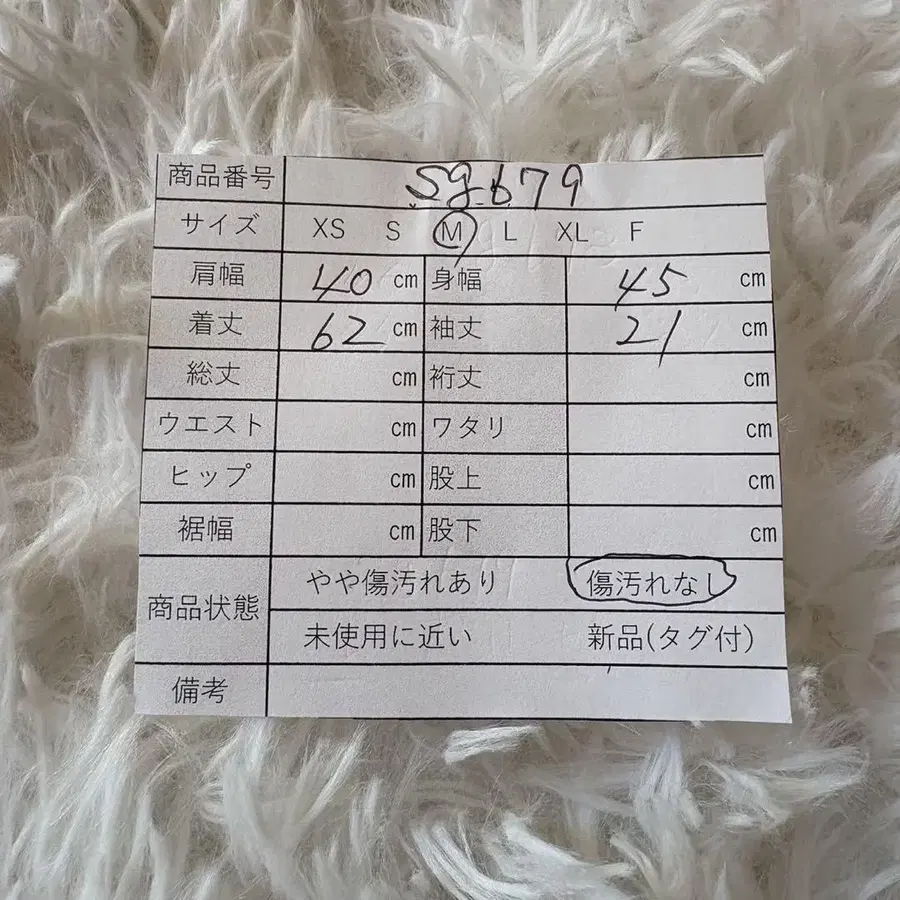 商品番号 sg679
サイズ XS S M L XL F
肩幅 40 cm 身幅 45 cm
着丈 62 cm 袖丈 21 cm
総丈 cm 裄丈 cm
ウエスト cm ワタリ cm
ヒップ cm 股上 cm
裾幅 cm 股下 cm
商品状態 やや傷汚れあり 傷汚れなし
未使用に近い 新品(タグ付)
備考